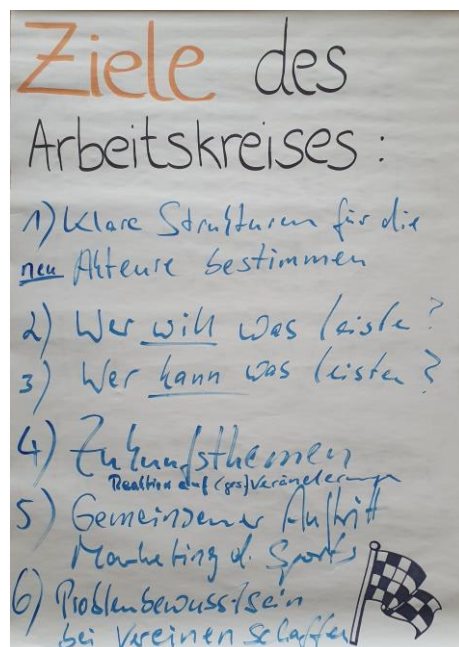 Ziele des
Arbeitskreises :
1) Klare Strukturen für die
neu Akteure bestimmen
2) Wer will was leisten?
3) Wer kann was leisten?
4) Zukunftsthemen
Reaktion auf (ges) Veränderungen
5) Gemeinsamer Auftritt
Marketing d. Sports
6) Problembewusstsein
bei Vereinen schaffen